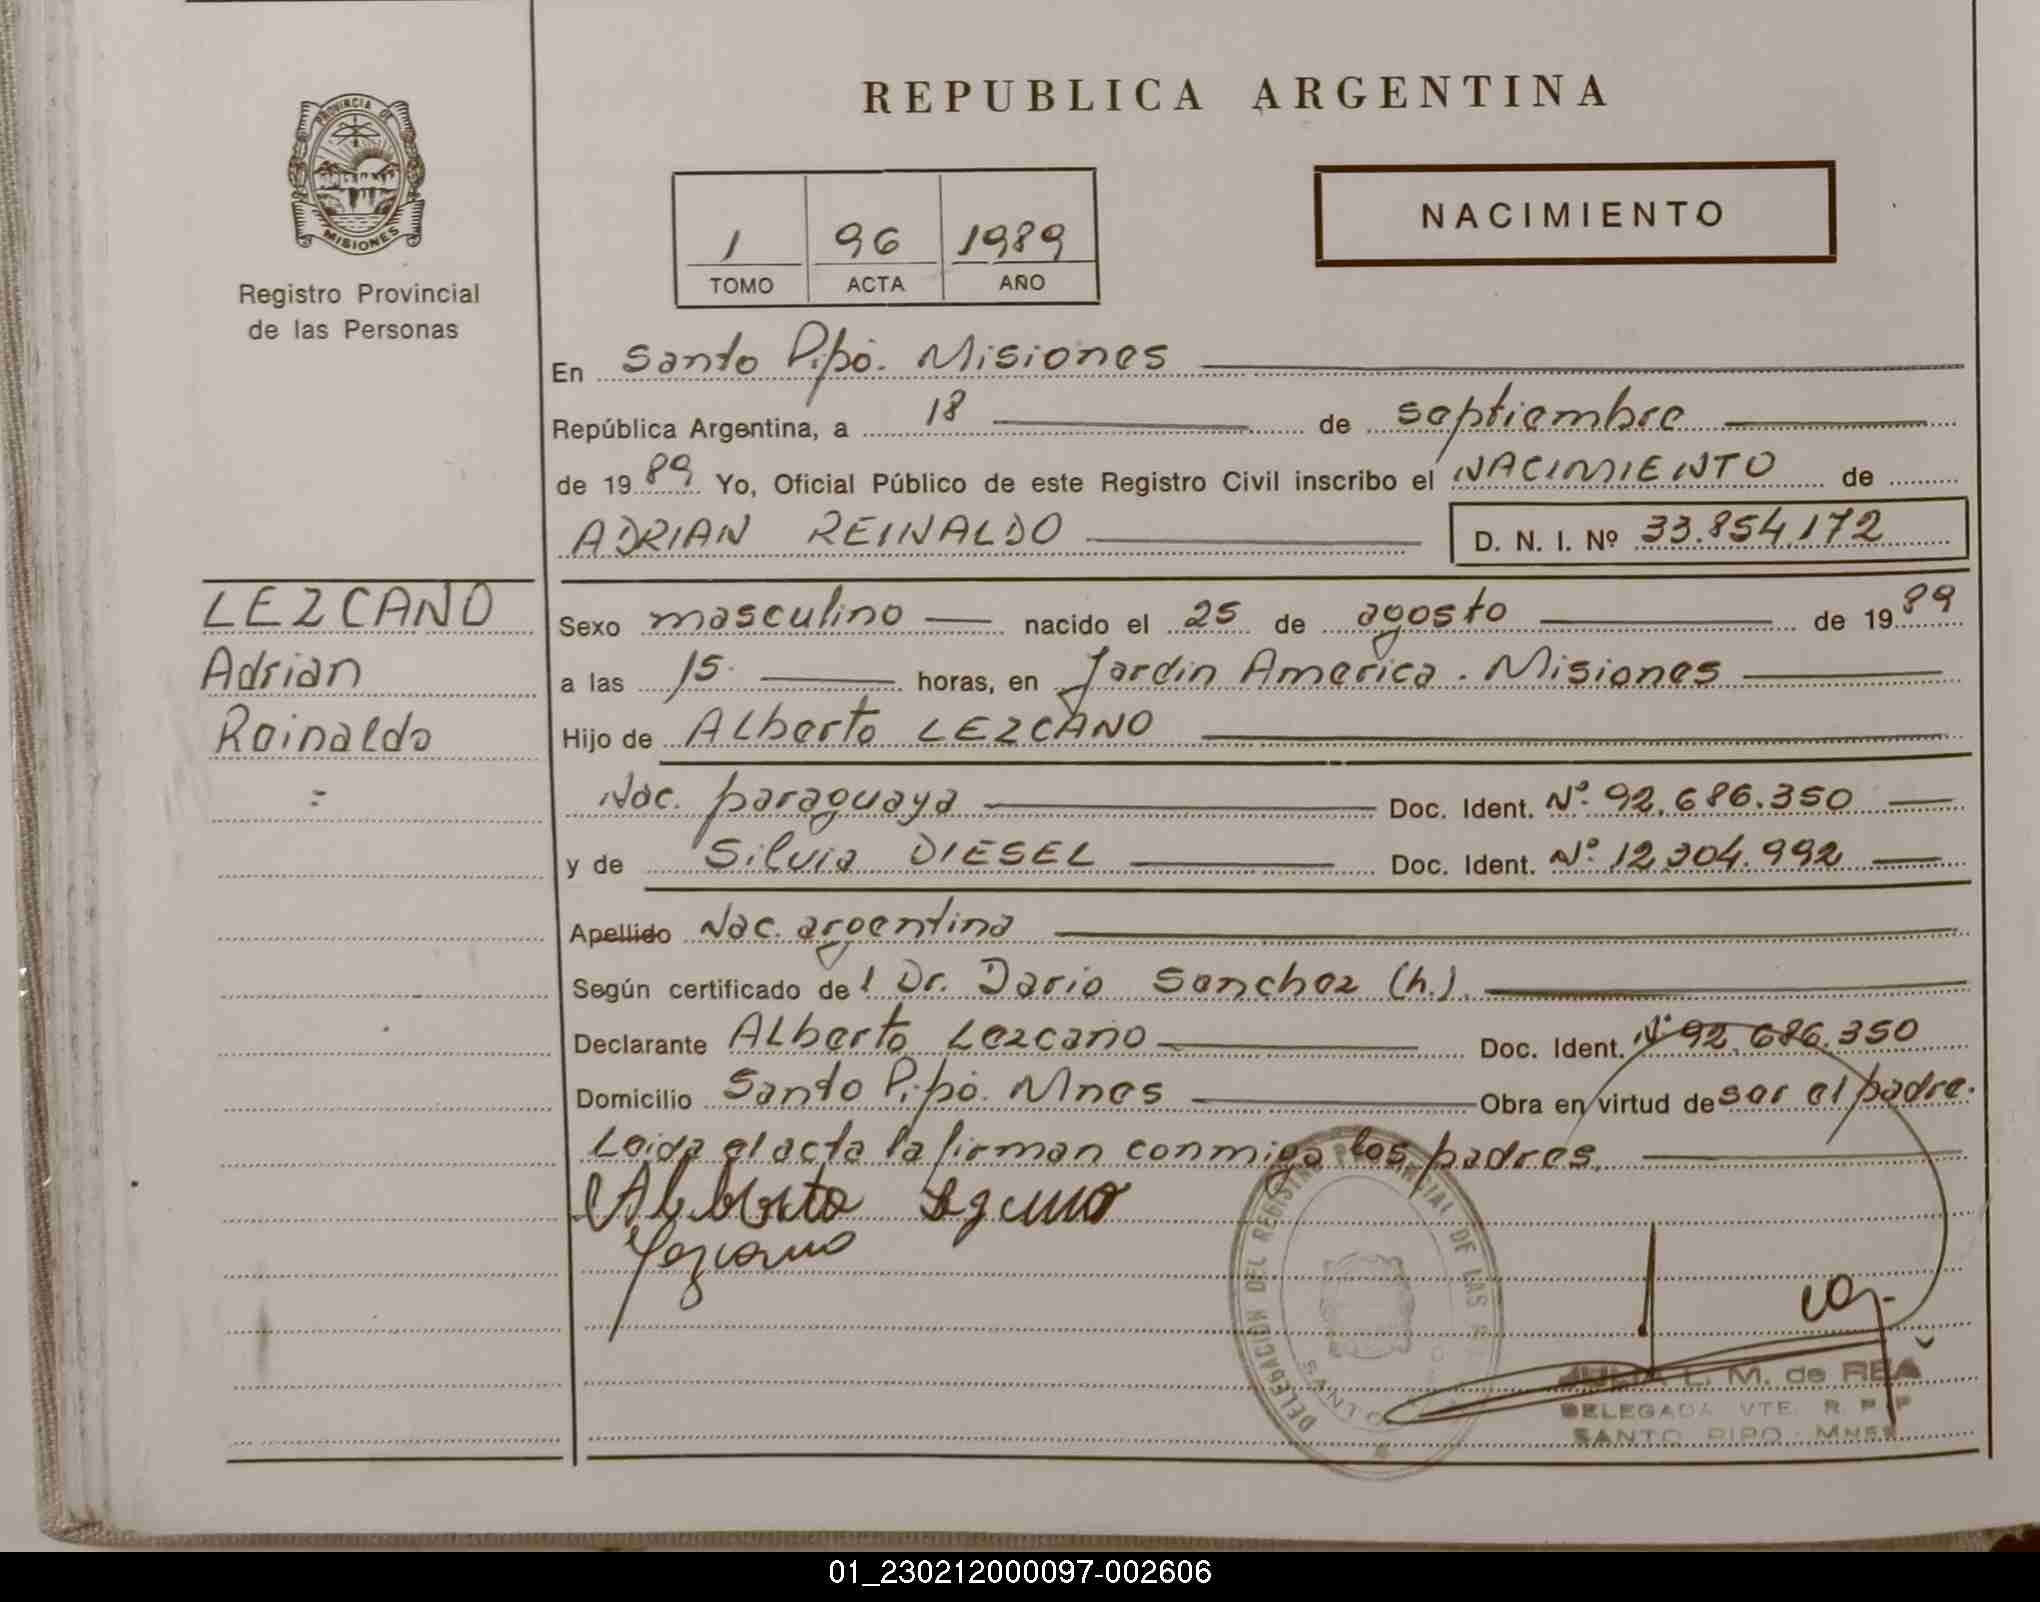 REPUBLICA ARGENTINA
PROVINCIA DE
MISIONES
Registro Provincial
de las Personas
1 96 1989
TOMO ACTA AÑO
NACIMIENTO
En Santo Pipó. Misiones
República Argentina, a 18 de septiembre
de 1989 Yo, Oficial Público de este Registro Civil inscribo el NACIMIENTO de
ADRIAN REINALDO D. N. I. Nº 33.854.172
LEZCANO
Adrian
Reinaldo
Sexo masculino nacido el 25 de agosto de 1989
a las 15 horas, en Jardin America. Misiones
Hijo de Alberto LEZCANO
Nac. paraguaya Doc. Ident. Nº 92.686.350
y de Silvia DIESEL Doc. Ident. Nº 12.304.992
Apellido Nac. argentina
Según certificado del Dr. Dario Sanchez (h.).
Declarante Alberto Lezcano Doc. Ident. Nº 92.686.350
Domicilio Santo Pipó. Mnes Obra en virtud de ser el padre.
Leida el acta la firman conmigo los padres.
Alberto
Lezcano
DELEGACION DEL REGISTRO PROVINCIAL DE LAS
SANTO
JULIA L. M. de REA
DELEGADA VTE. R. P. P
SANTO PIPO - MNES
01_230212000097-002606